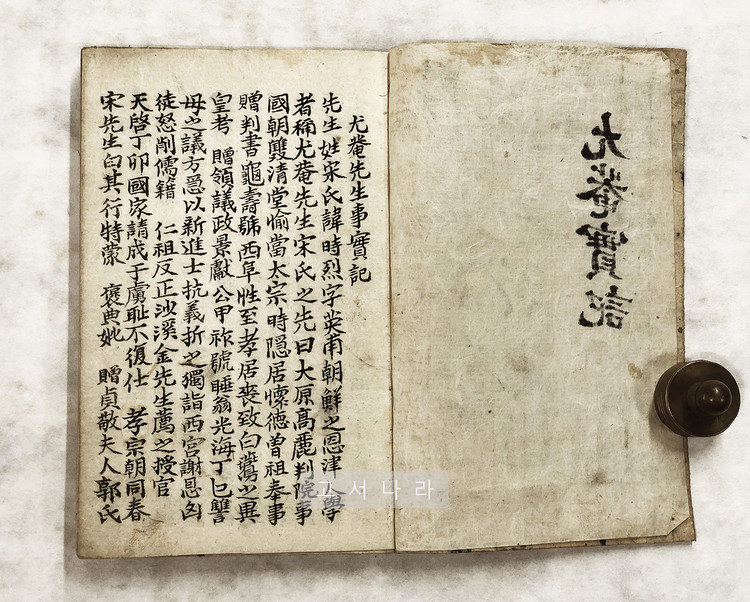 尤菴實記
尤菴先生事實記
先生姓宋氏諱時烈字英甫朝鮮之恩津人學
者稱尤菴先生宋氏之先曰大原高麗判院事
國朝雙清堂愉當太宗時隱居懷德曾祖奉事
贈判書龜壽號西阜性至孝居喪致白鷰之異
皇考 贈領議政景獻公甲祚號睡翁光海丁巳讐
母之議方爲以新進士抗義折之獨詣西宮謝恩凶
徒怒削儒籍 仁祖反正沙溪金先生薦之授官
天啓丁卯國家請成于虜耻不復仕 孝宗朝同春
宋先生白其行特蒙 褒典妣 贈貞敬夫人郭氏
고서나라